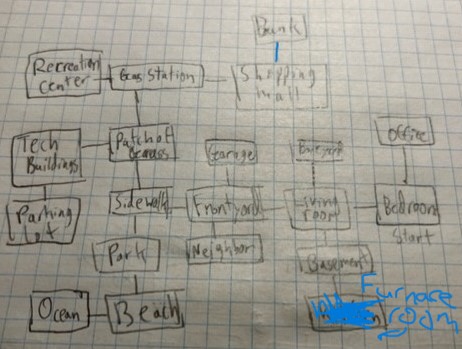 Bank
Recreation
Center
Gas Station
Shopping
mall
Tech
Buildings
Patch of
Grass
Garage
Backyard
Office
Parking
Lot
Sidewalk
Frontyard
Living
room
Bedroom
Start
Park
Neighbor
Basement
Ocean
Beach
Furnace
room